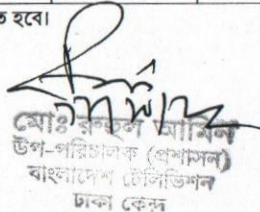 হবে।
মোঃ রুহুল আমিন
উপ-পরিচালক (প্রশাসন)
বাংলাদেশ টেলিভিশন
ঢাকা কেন্দ্র